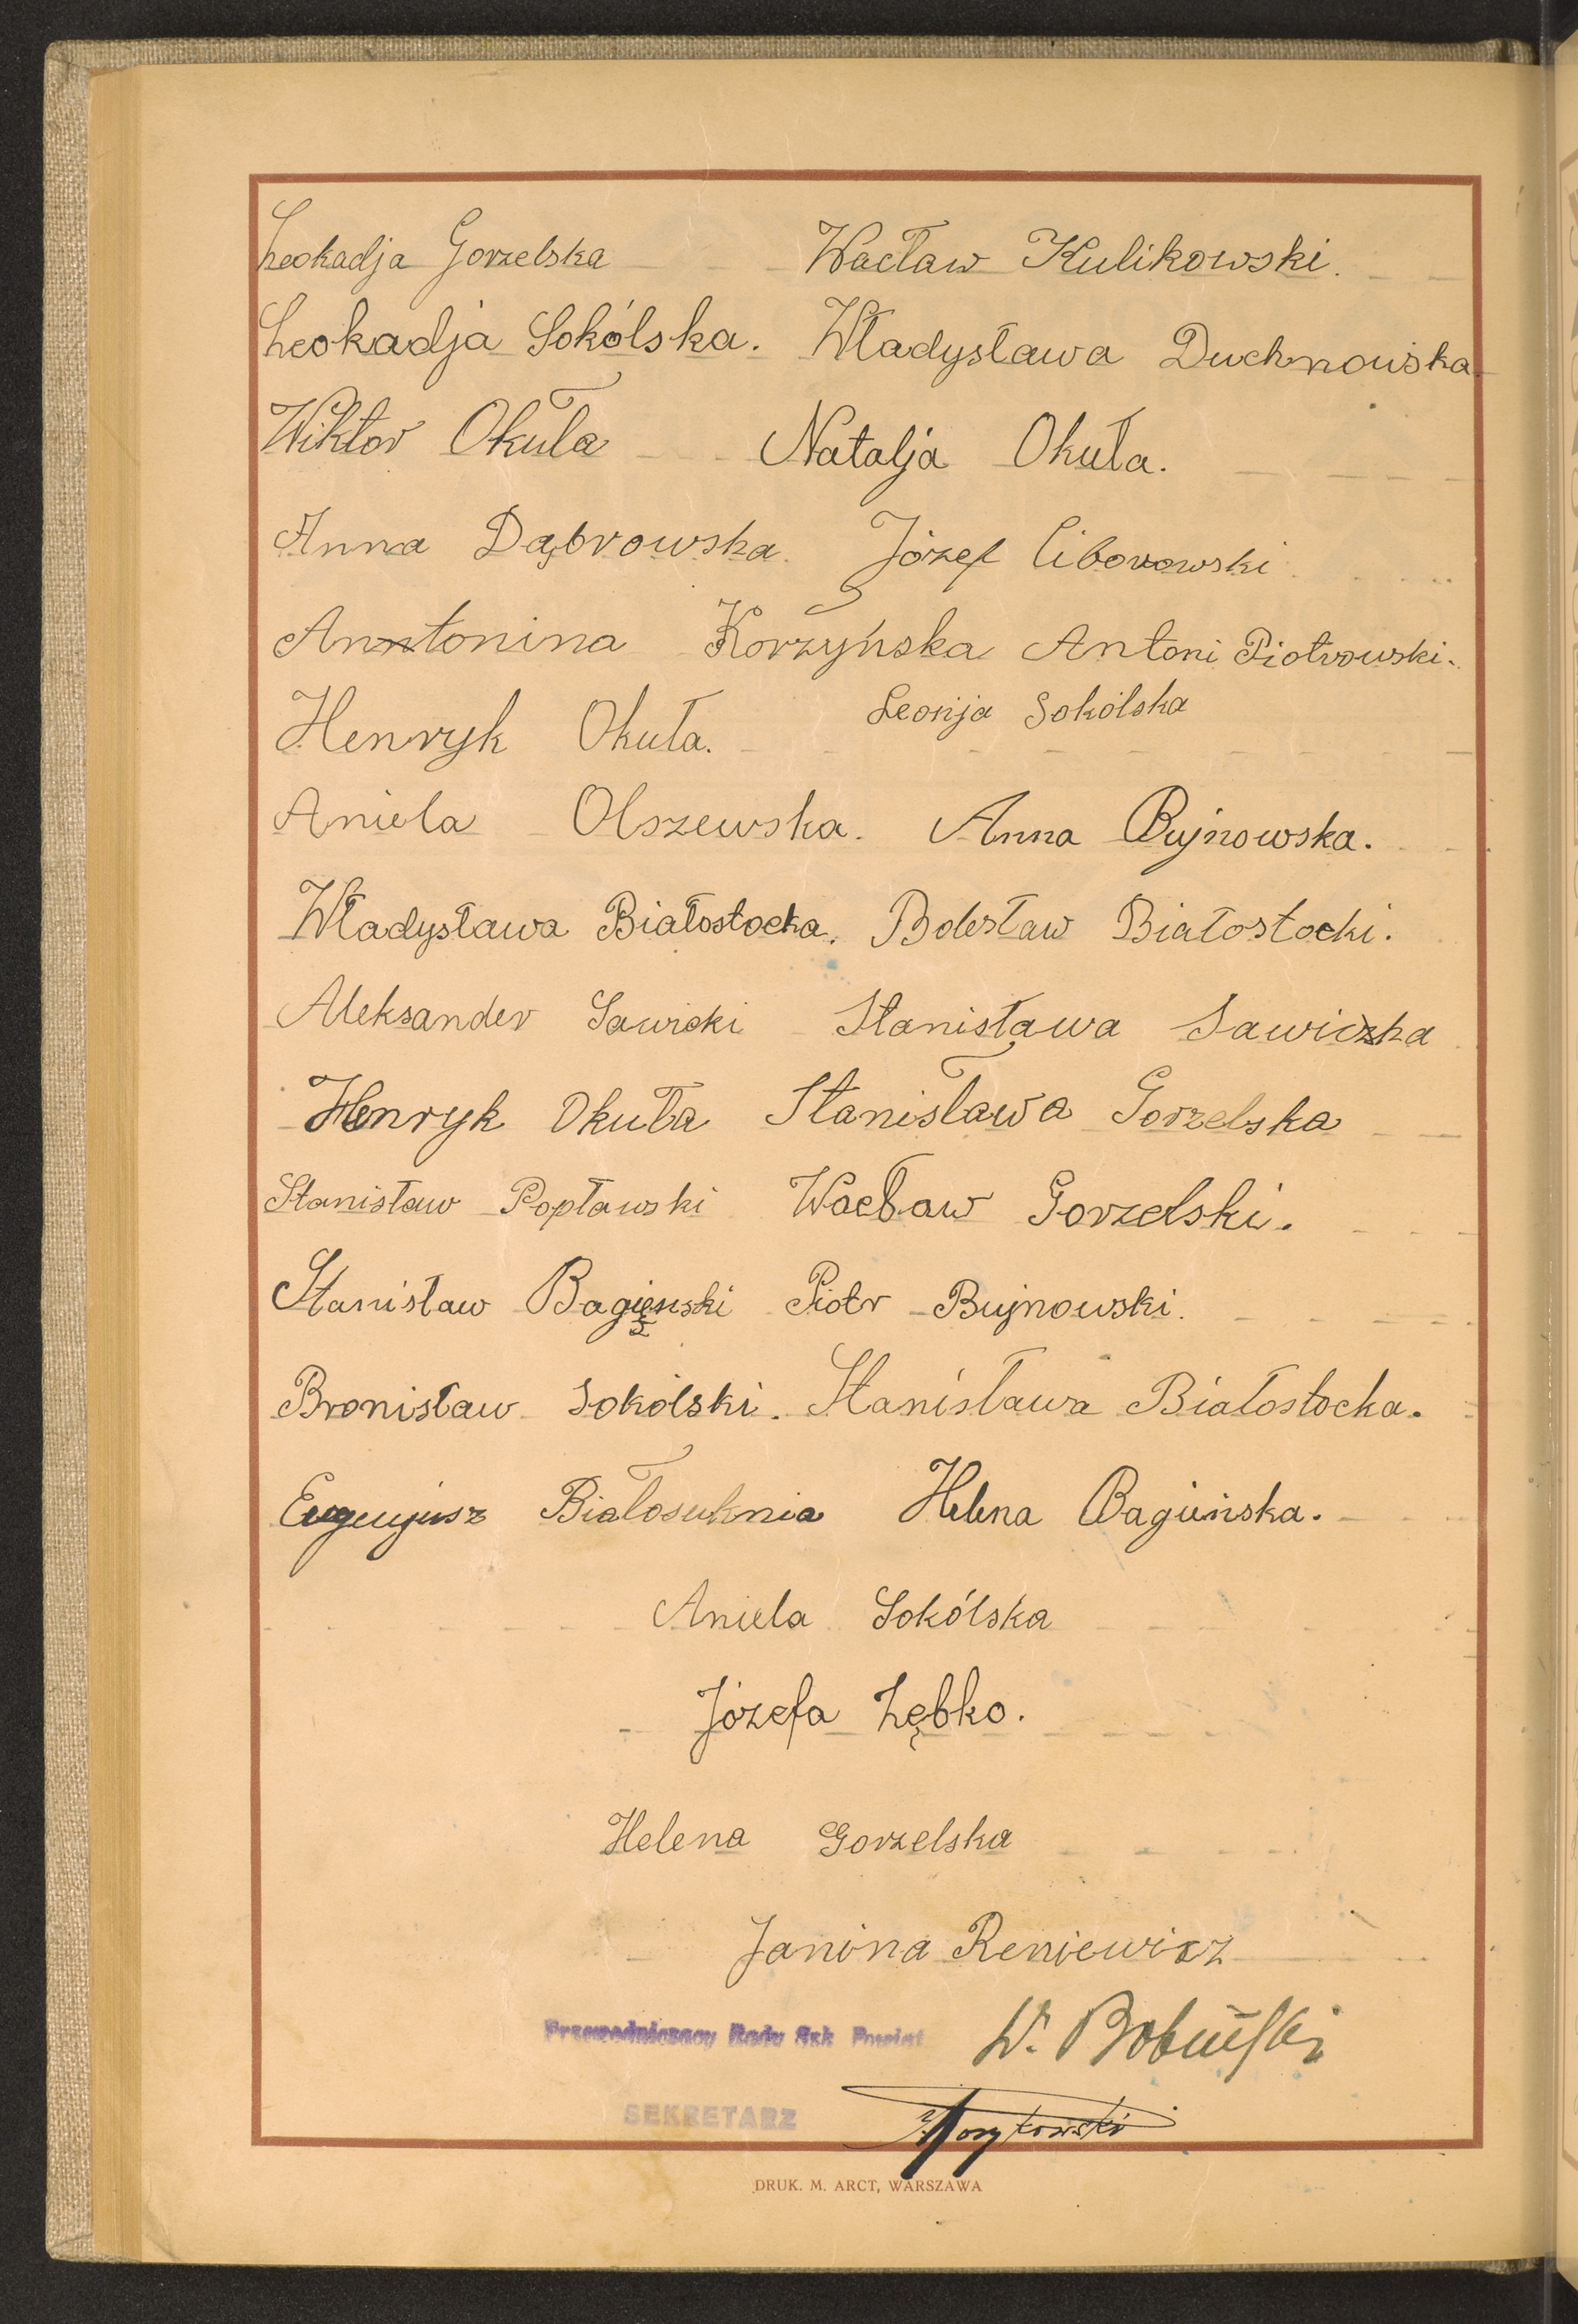 Leokadja Gorzelska Wacław Kulikowski.
Leokadja Sokólska. Władysława Duchnowska
Wiktor Okuła Natalja Okuła.
Anna Dąbrowska. Józef Ciborowski
Anntonina Korzyńska Antoni Piotrowski.
Henryk Okuła. Leonja Sokólska
Aniela Olszewska. Anna Bujnowska.
Władysława Białostocka. Bolesław Białostocki.
Aleksander Sawicki Stanisława Sawicka
Henryk Okuła Stanisława Gorzelska
Stanisław Popławski Wacław Gorzelski.
Stanisław Bagieński Piotr Bujnowski.
Bronisław Sokólski. Stanisława Białostocka.
Eugenjusz Białosuknia Helena Bagieńska.
Aniela Sokólska
Józefa Zębko.
Helena Gorzelska
Janina Reniewicz
Przewodniczący Rady Szk Powiat W. Bobiński
SEKRETARZ
DRUK. M. ARCT, WARSZAWA